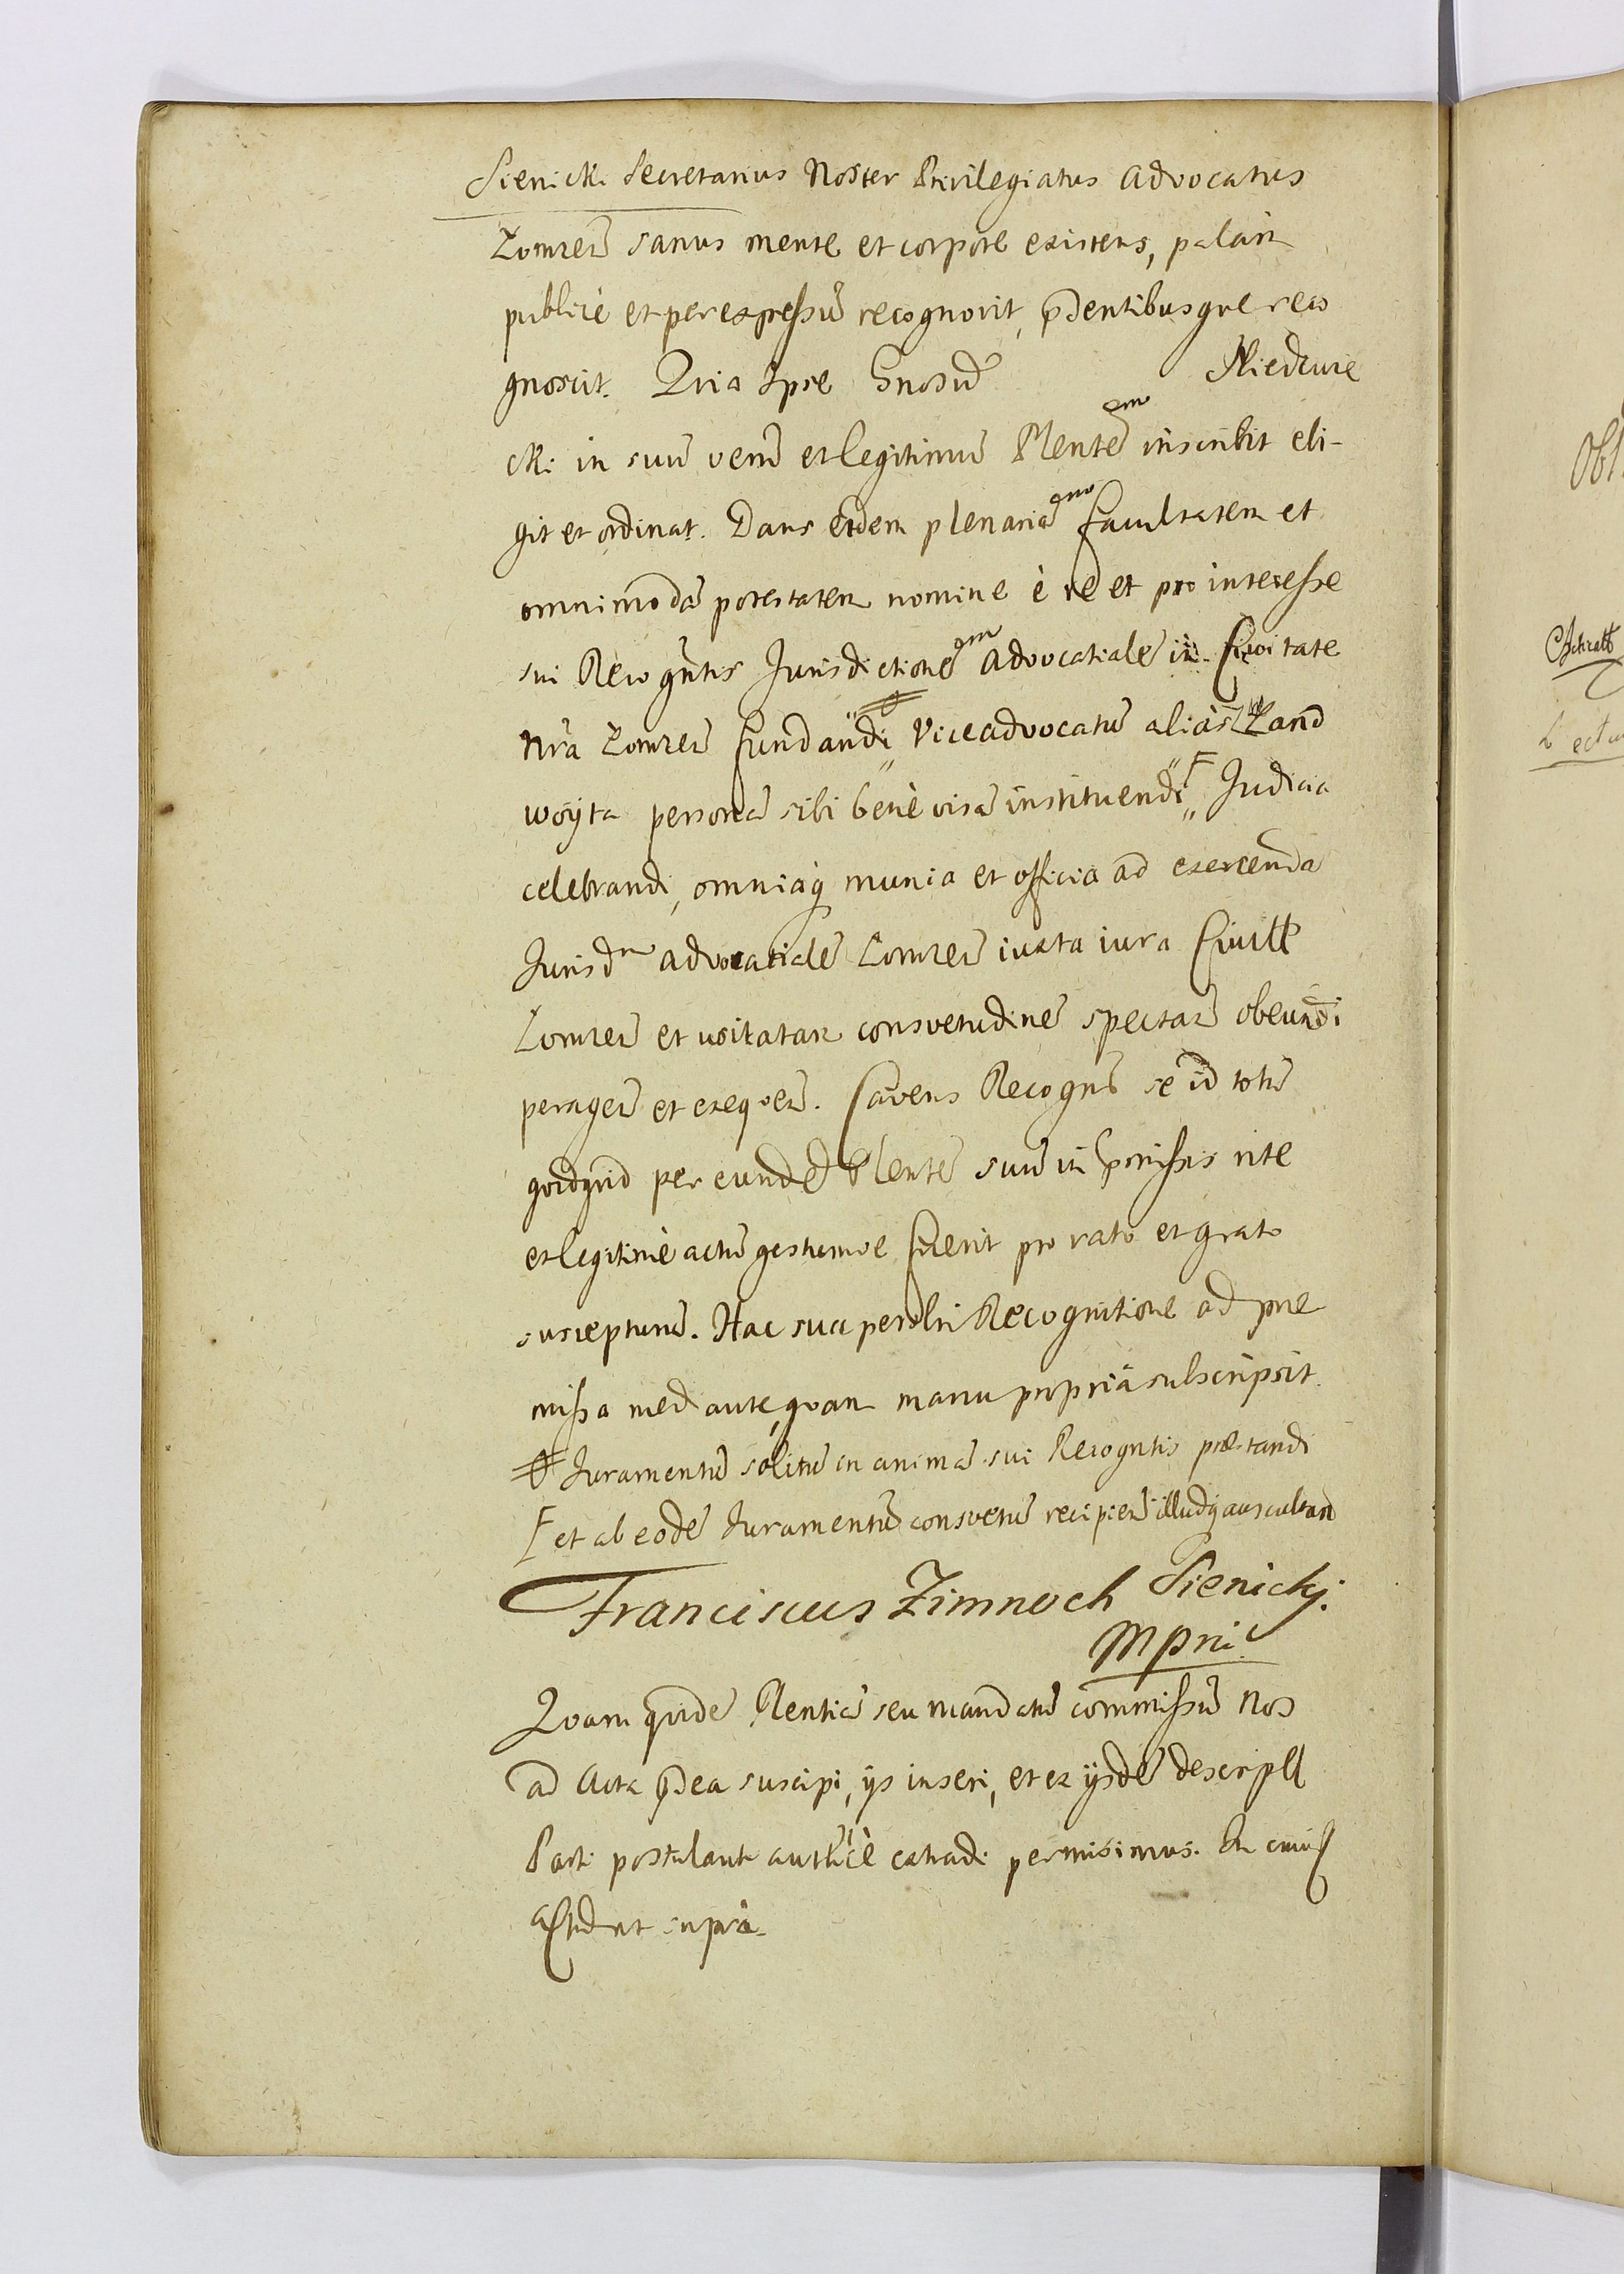 Sienicki Secretarius Noster Privilegiatus Advocatus
Łomzeñ sanus mente et corpore existens, palàm
publicè et per expressũ recognovit, p̃dentibusque reco
gnoscit. Quia Ipse Gnosũ Niedzwie
cki in suũ verũ et legitimũ Plentẽ em inscribit eli-
git et ordinat. Dans eidem plenariã facultatem et
omnimodã potestatem nomine è re et pro interesse
sui Recogñtis Jurisdictionẽ Advocatialẽ in Civitate
Nr̃a Łomzeñ fundandi Viceadvocatũ aliàs Land
woyta personã sibi benè visã instituendi Judicia
celebrandi, omniaq̃ munia et officia ad exercendã
Jurisdm Advocatialẽ Łomzeñ iuxta iura Civitt
Łomzeñ et usitatam consvetudinẽ spectañ obeundi
perageñ et exequeñ. Cavens Recogñs se id totũ
quidquid per eundẽ Plentẽ suũ in p̃missis rite
et legitimè actũ gestumve fuerit pro rato et grato
suscepturũ. Hac sua personli Recognitione ad pre
missa mediante, quam manu propriâ subscripsit.
# Juramentũ solitũ in animã sui Recogntis præstandi
F et ab eodẽ Juramentũ consvetũ recipieñ illudq̃ auscultand
Franciscus Zimnoch Sienicky.
Mpria
Quam quidẽ Plentiã seu mandatũ commissũ Nos
ad Acta p̃dea suscipi, ijs inseri, et ex ijsdẽ descriptt
Parti postulanti authcè extradi permisimus. In cuius
Actũ ut supra.
Obl